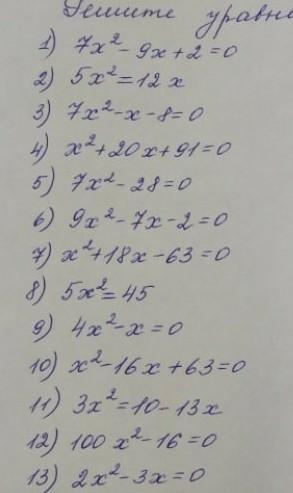 Решите уравне
1) 7x² - 9x + 2 = 0
2) 5x² = 12x
3) 7x² - x - 8 = 0
4) x² + 20x + 91 = 0
5) 7x² - 28 = 0
6) 9x² - 7x - 2 = 0
7) x² + 18x - 63 = 0
8) 5x² = 45
9) 4x² - x = 0
10) x² - 16x + 63 = 0
11) 3x² = 10 - 13x
12) 100x² - 16 = 0
13) 2x² - 3x = 0